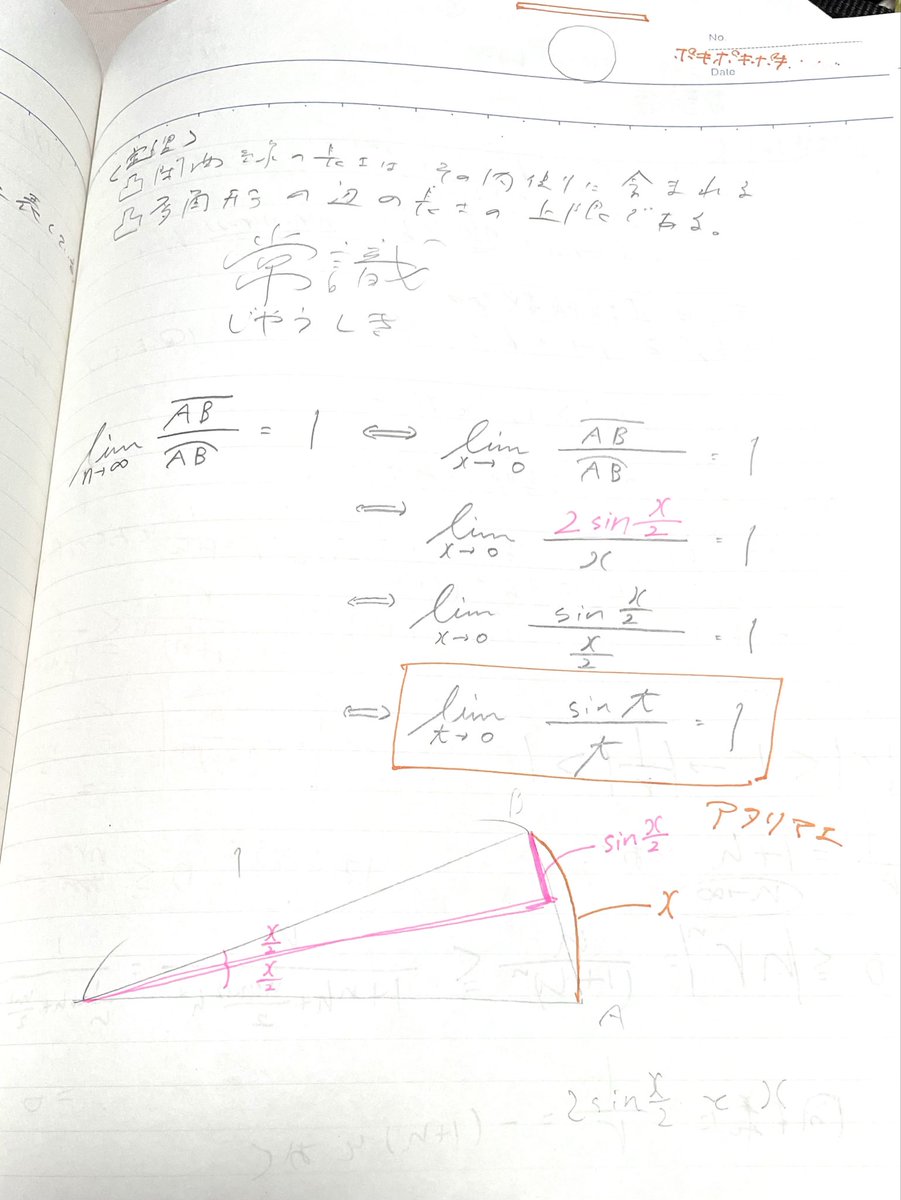 No
ポキポキポキ....
Date
(定理)
凸閉曲線の長さは、その内側に含まれる
凸多角形の辺の長さの上限である。
常識
じやうしき
lim n→∞ AB/AB = 1 ⟺ lim x→0 AB/AB = 1
⟺ lim x→0 2 sin x/2 / x = 1
⟺ lim x→0 sin x/2 / x/2 = 1
⟺ lim t→0 sin t / t = 1
アタリマエ
B
sin x/2
1
x
x/2
x/2
A
2 sin x/2